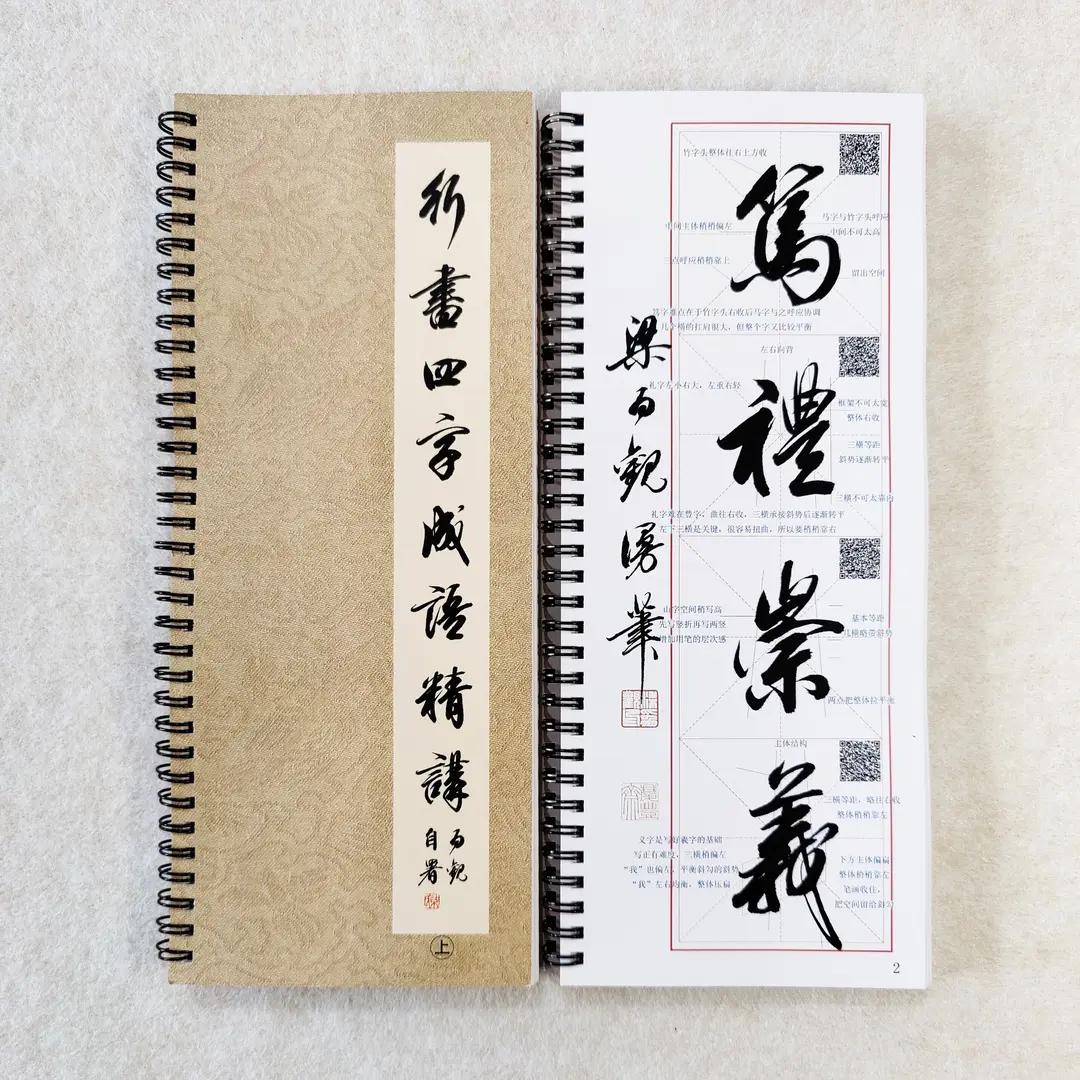 行書四字成語精講
自署
上
竹字头整体往右上方收
篤
马字与竹字头呼应
中间不可太高
中间主体稍稍偏左
三点呼应稍稍靠上
留出空间
笃字难点在于竹字头右收后马字与之呼应协调
几个横的扛肩很大，但整个字又比较平衡
左右向背
禮
礼字左小右大，左重右轻
框架不可太宽
整体右收
三横等距
斜势逐渐转平
三横不可太靠内
礼字难在豊字，曲往右收，三横承接斜势后逐渐转平
左下三横是关键，很容易扭曲，所以要稍稍靠右
崇
山字空间稍写高
先写竖折再写两竖
增加用笔的层次感
基本等距
几横略带斜势
两点把整体拉平衡
上体结构
義
三横等距，略往右收
整体稍稍靠左
义字是写好義字的基础
写正有难度，三横稍偏左
“我”也偏左，平衡斜勾的斜势
“我”左右均衡，整体压扁
下方主体偏扁
整体稍稍靠左
笔画收住，
把空间留给斜勾
2